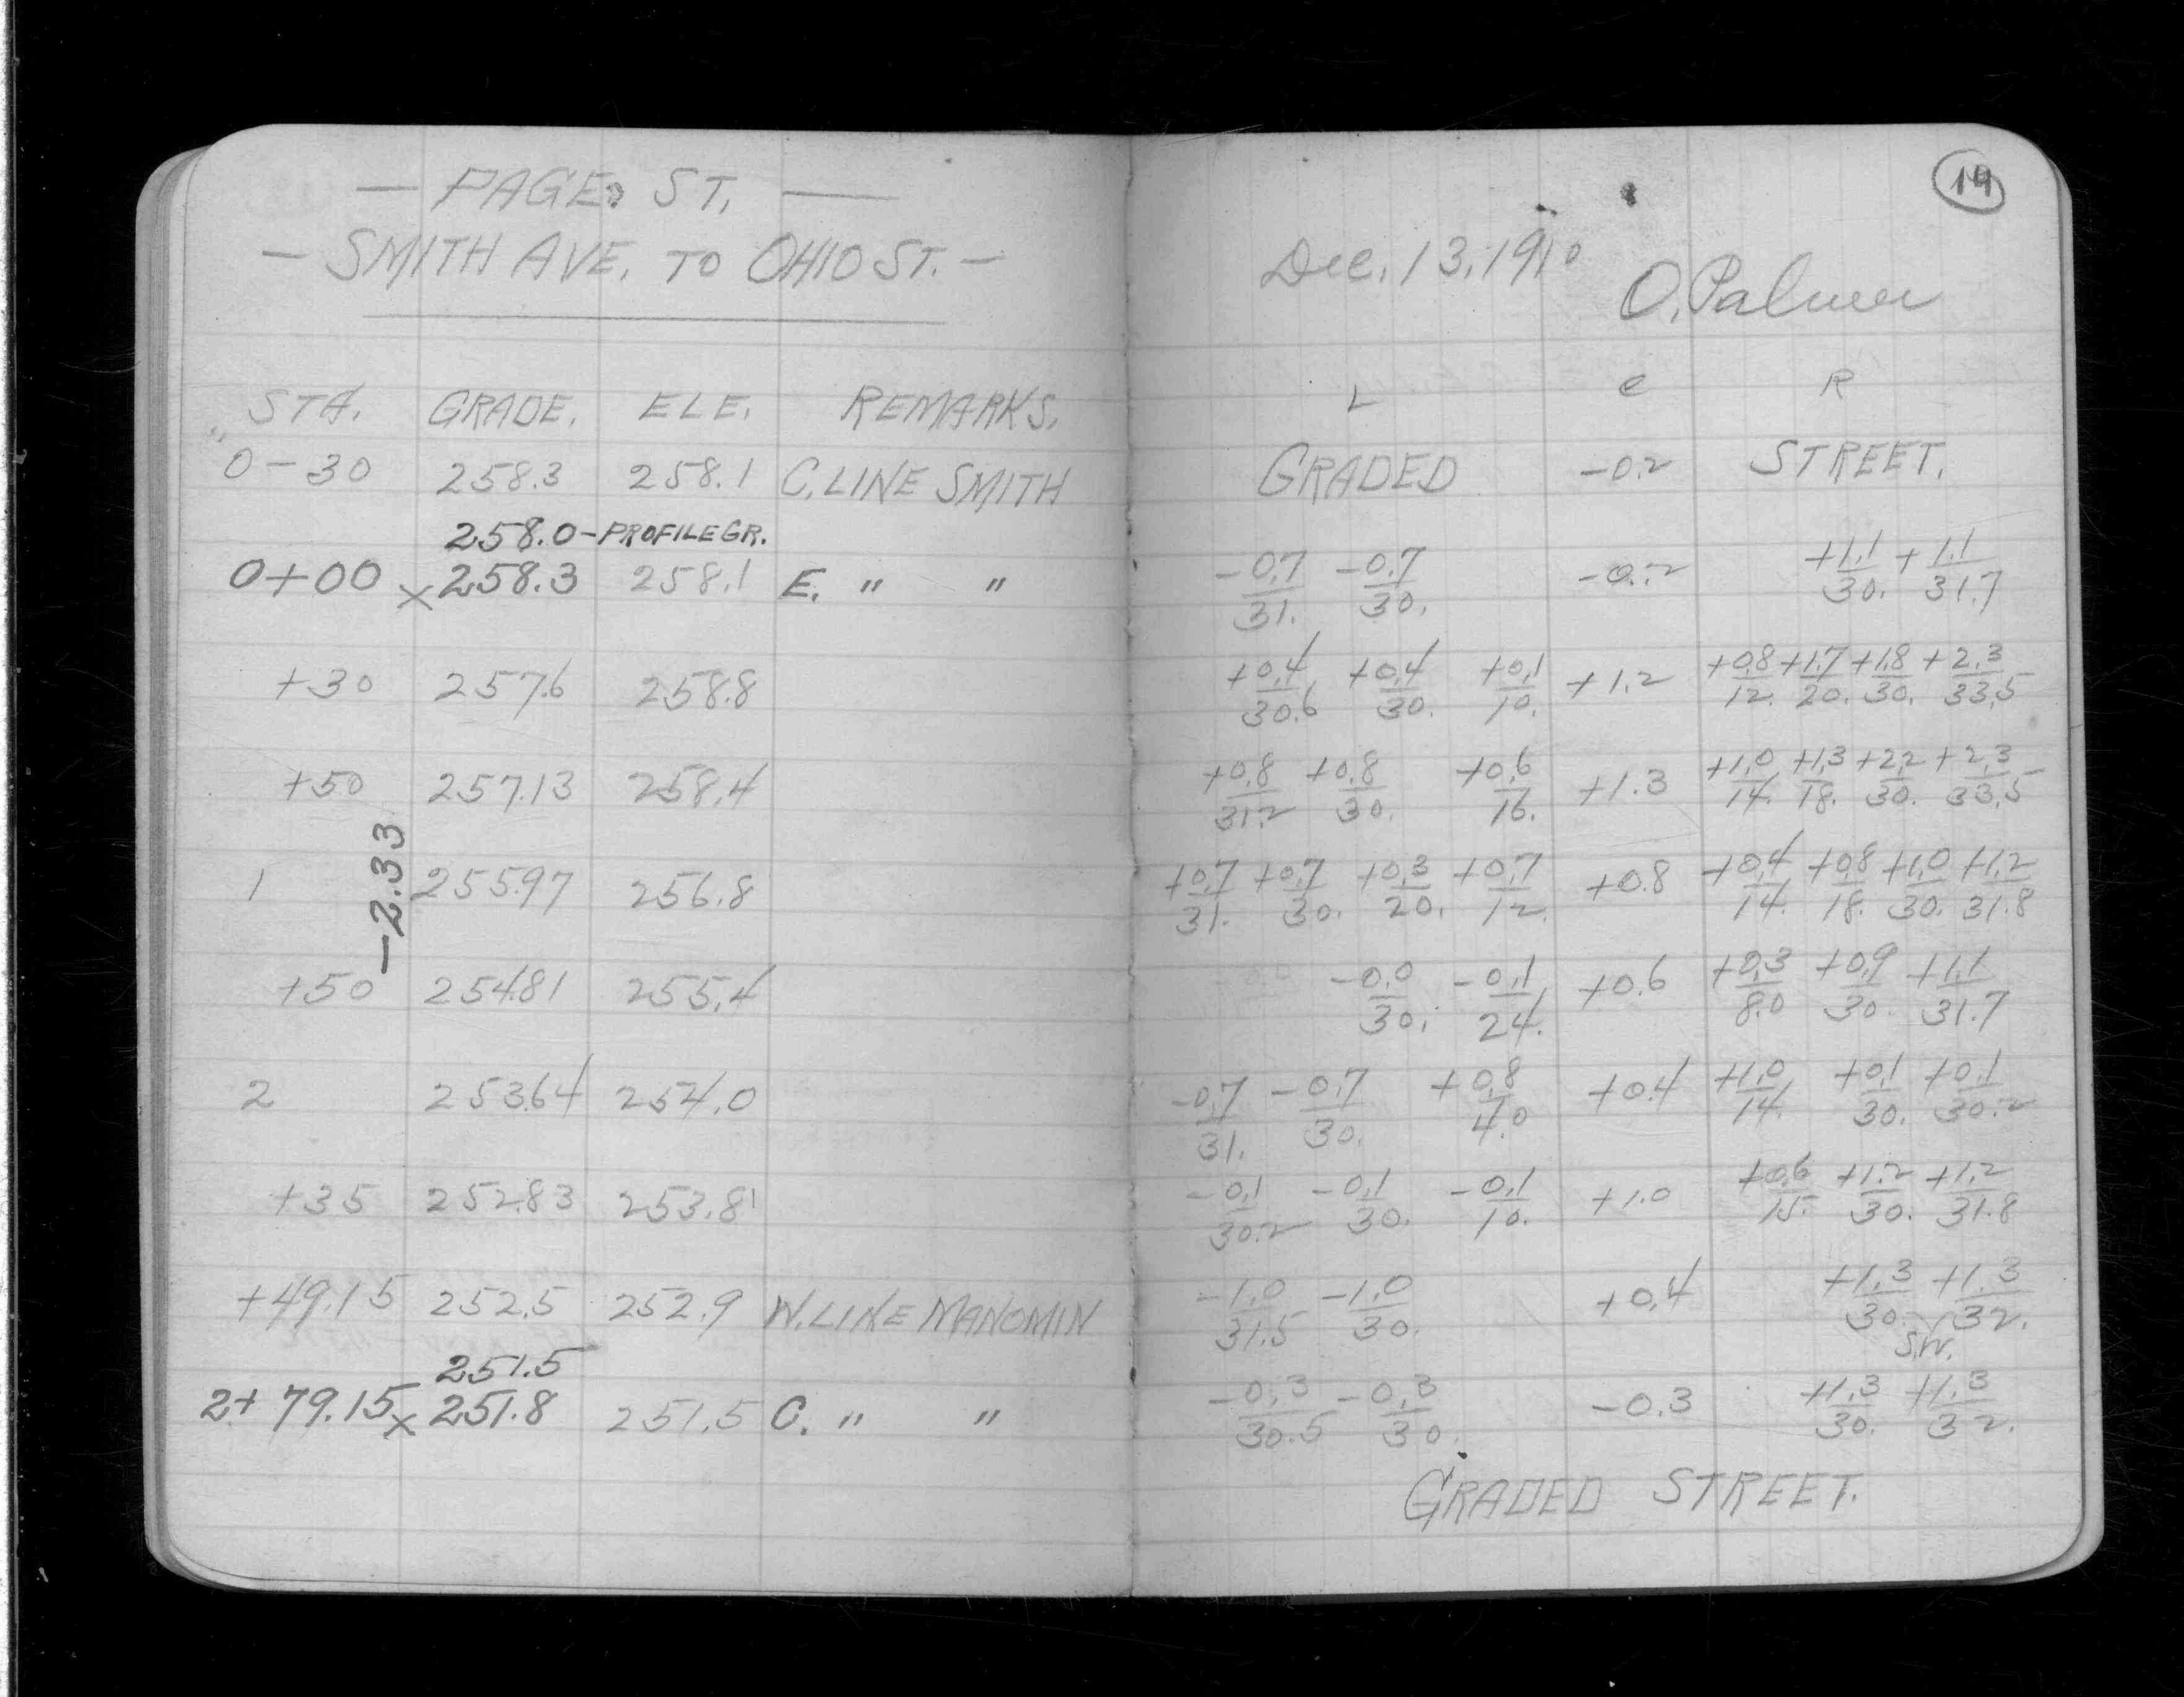 — PAGE ST. —
— SMITH AVE. TO OHIO ST. —
STA. GRADE. ELE. REMARKS.
0-30 258.3 258.1 C. LINE SMITH
258.0 - PROFILE GR.
0+00 x 258.3 258.1 E. " "
+30 257.6 258.8
+50 257.13 258.4
-2.33
1 255.97 256.8
+50 254.81 255.4
2 253.64 254.0
+35 252.83 253.81
+49.15 252.5 252.9 W. LINE MANOMIN
251.5
2+79.15 x 251.8 251.5 C. " "
14
Dec. 13, 1910
O. Palmer
L C R
GRADED -0.2 STREET.
-0.7 -0.7 -0.2 +1.1 +1.1
31. 30. 30. 31.7
+0.4 +0.4 +0.1 +1.2 +0.8 +1.7 +1.8 +2.3
30.6 30. 10. 12. 20. 30. 33.5
+0.8 +0.8 +0.6 +1.3 +1.0 +1.3 +2.2 +2.3
31.2 30. 16. 14. 18. 30. 33.5
+0.7 +0.7 +0.3 +0.7 +0.8 +0.4 +0.8 +1.0 +1.2
31. 30. 20. 12. 14. 18. 30. 31.8
-0.0 -0.1 +0.6 +0.3 +0.9 +1.1
30. 24. 8.0 30. 31.7
-0.7 -0.7 +0.8 +0.4 +1.0 +0.1 +0.1
31. 30. 4.0 14. 30. 30.2
-0.1 -0.1 -0.1 +1.0 +0.6 +1.2 +1.2
30.2 30. 10. 15. 30. 31.8
-1.0 -1.0 +0.4 +1.3 +1.3
31.5 30. 30. 32.
S.W.
-0.3 -0.3 -0.3 +1.3 +1.3
30.5 30. 30. 32.
GRADED STREET.